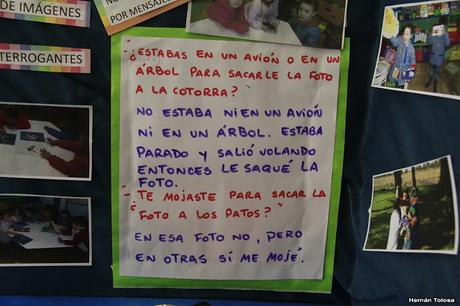 DE IMÁGENES
TERROGANTES
POR MENSAJES
"¿ESTABAS EN UN AVIÓN O EN UN
ÁRBOL PARA SACARLE LA FOTO
A LA COTORRA?"
NO ESTABA NI EN UN AVIÓN
NI EN UN ÁRBOL. ESTABA
PARADO Y SALIÓ VOLANDO
ENTONCES LE SAQUÉ LA
FOTO.
- TE MOJASTE PARA SACAR LA
¿FOTO A LOS PATOS?"
EN ESA FOTO NO, PERO
EN OTRAS SÍ ME MOJÉ.
Hernán Tolosa